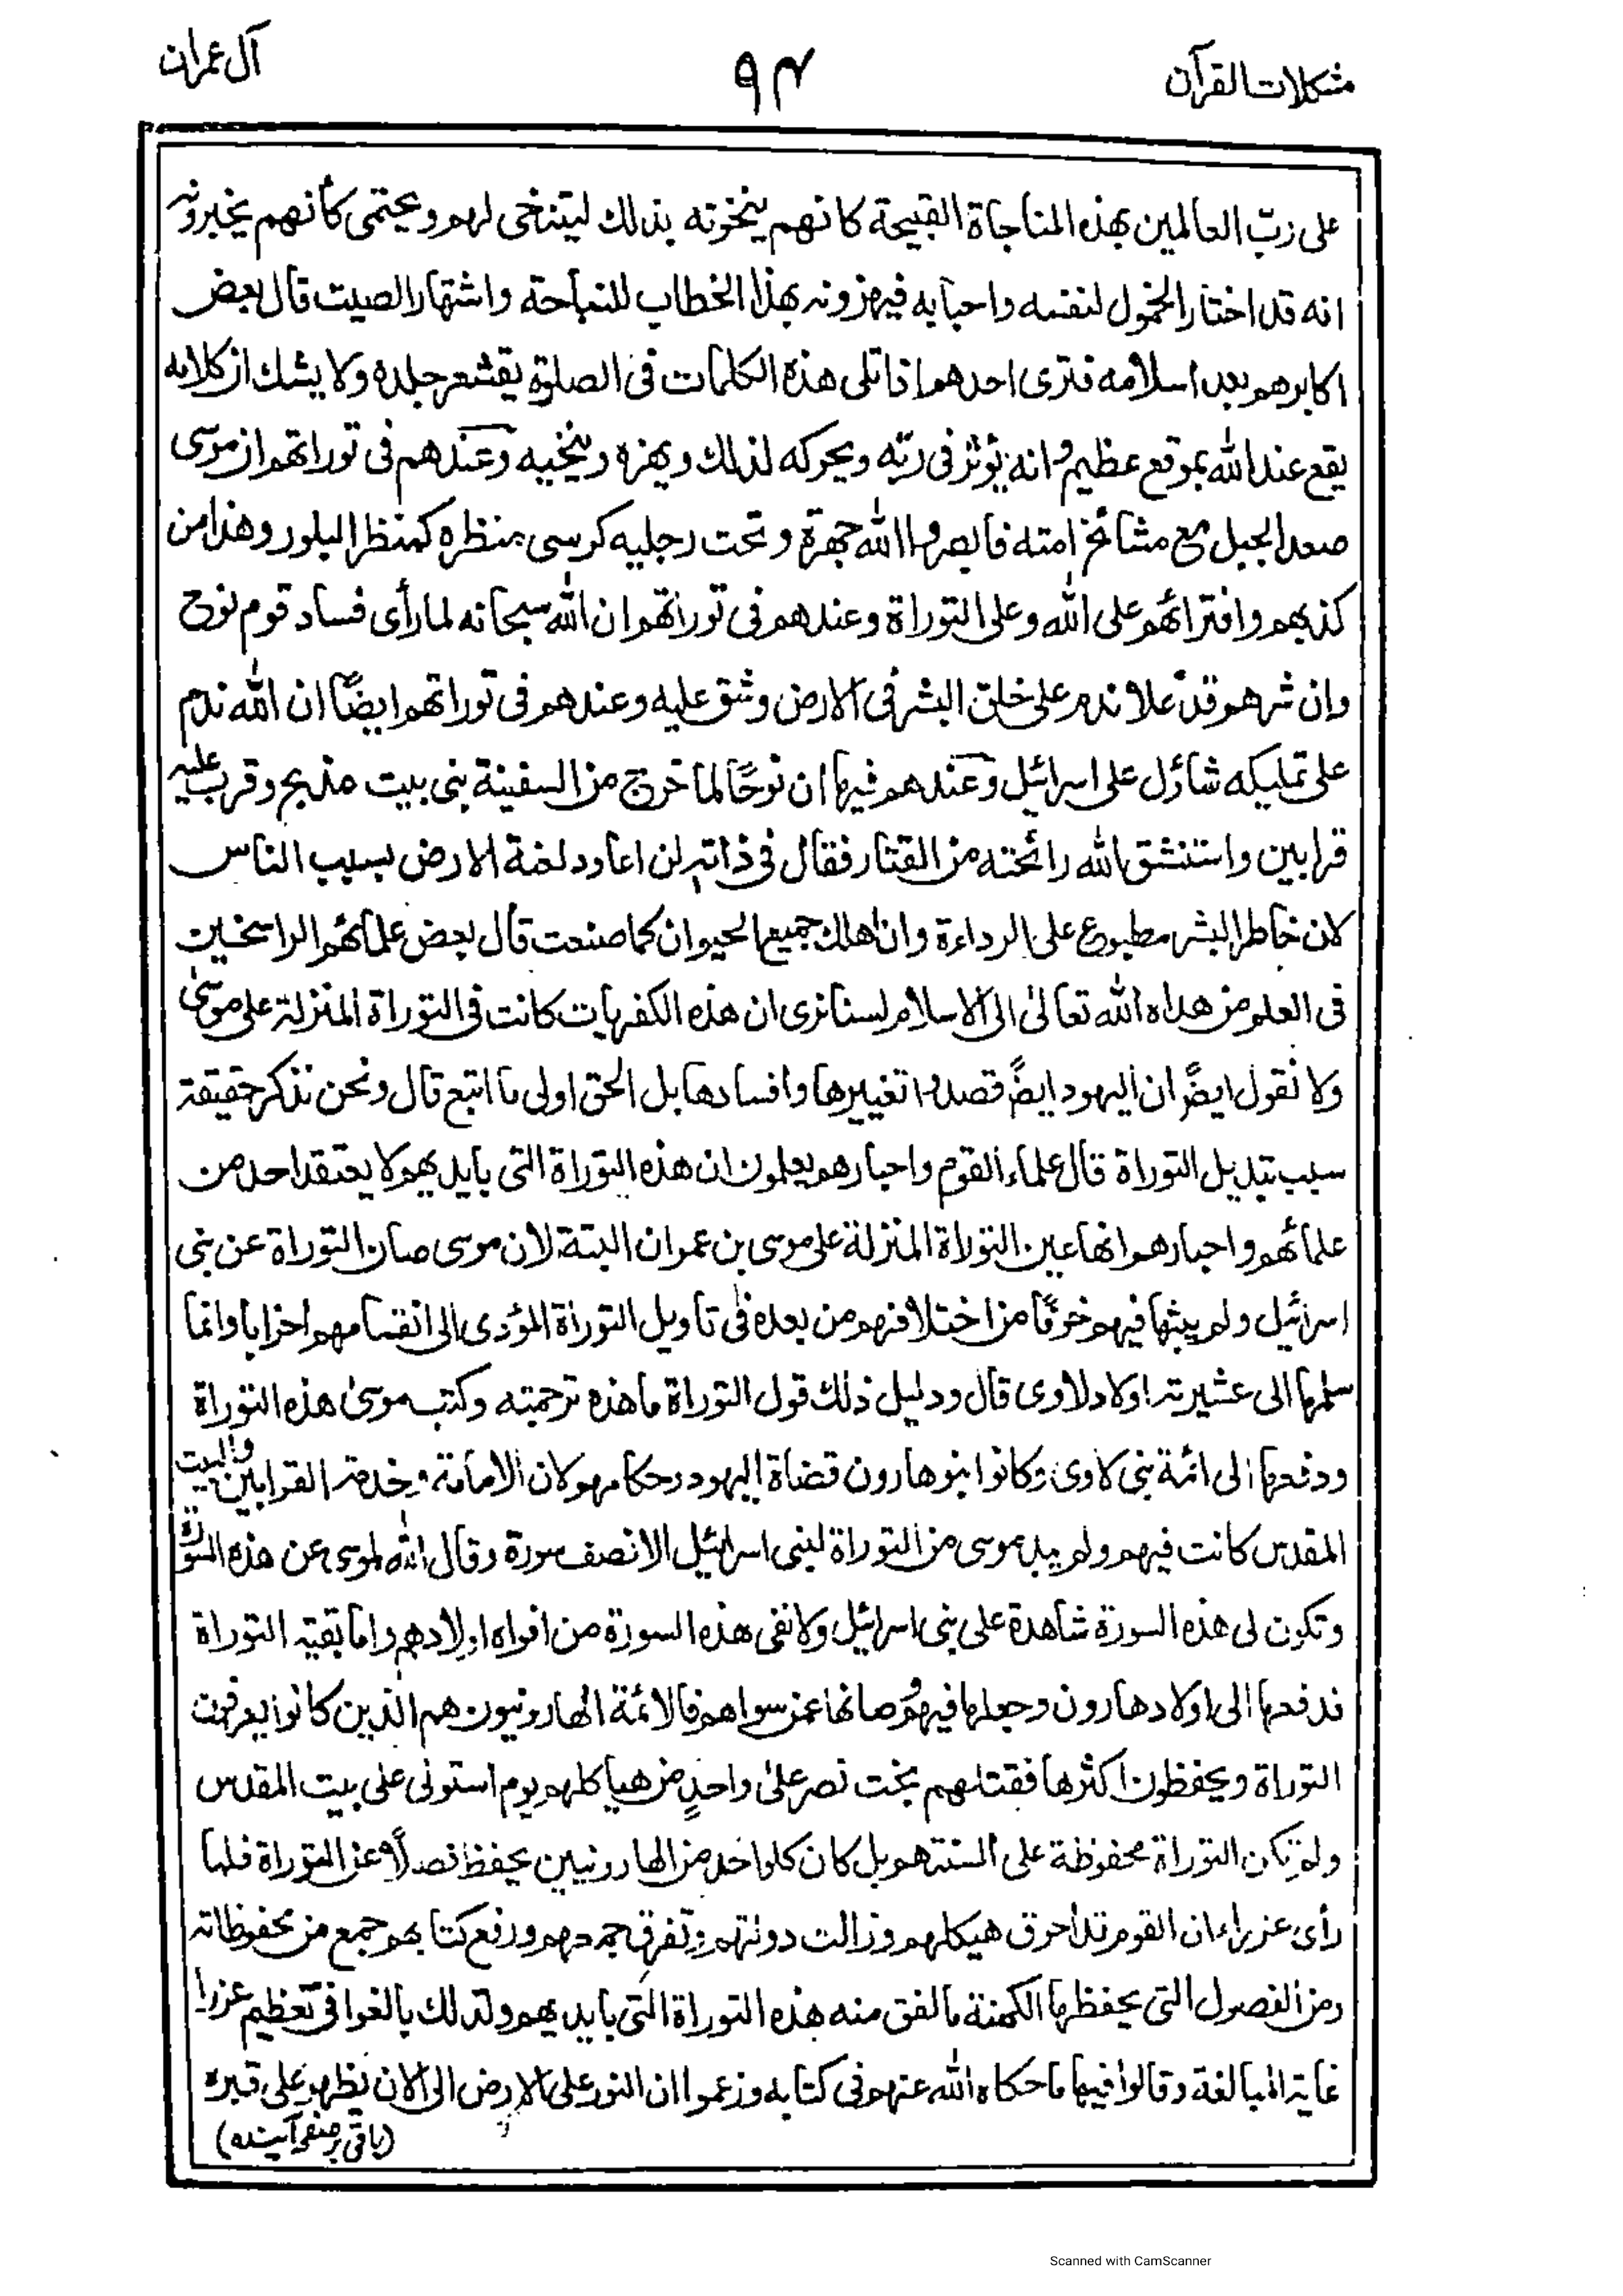 مشکلات القرآن
٩٤
آل عمران
على ربّ العالمين بهذه المناجاة القبيحة كانهم ينخونه بذلك ليتنخى لهم و يحتمى كأنهم يخبرونه
انه قد اختار الخمول لنفسه واحبابه فيهزونه بهذا الخطاب للنباحة واشتهار الصيت قال بعض
اكابرهم بعد اسلامه فترى احدهم اذا تلى هذه الكلمات فى الصلوة يقشعر جلده ولا يشك ان كلامه
يقع عند الله بموقع عظيم وانه يؤثر فى ربّه ويحركه لذلك ويهزه وينخيه وعندهم فى توراتهم ان موسى
صعد الجبل مع مشائخ امته فابصروا الله جهرة وتحت رجليه كرسى منظره كمنظر البلور وهذا من
كذبهم وافترائهم على الله وعلى التوراة وعندهم فى توراتهم ان الله سبحانه لما رأى فساد قوم نوح
وان شرهم قد علا ندم على خلق البشر فى الارض وشق عليه وعندهم فى توراتهم ايضًا ان الله ندم
على تمليكه شاؤل على اسرائيل وعندهم فيها ان نوحًا لما خرج من السفينة بنى بيت مذبح وقرب عليه
قرابين واستنشق الله رائحته من القتار فقال فى ذاته لن اعاود لعنة الارض بسبب الناس
لان خاطر البشر مطبوع على الرداءة وان اهلك جميع الحيوان كما صنعت قال بعض علمائهم الراسخين
فى العلم من هداه الله تعالىٰ الى الاسلام لسنا نرى ان هذه الكفريات كانت فى التوراة المنزلة على موسىٰ
ولا نقول ايضًا ان اليهود ايضًا قصدوا تغييرها وافسادها بل الحق اولى ما اتبع قال ونحن نذكر حقيقة
سبب تبديل التوراة قال علماء القوم واحبارهم يعلمون ان هذه التوراة التى بايديهم لا يعتقد احد من
علمائهم واحبارهم انها عين التوراة المنزلة على موسى بن عمران البتة لان موسى صان التوراة عن بنى
اسرائيل ولم يبثها فيهم خوفًا من اختلافهم من بعده فى تاويل التوراة المؤدى الى انقسامهم احزابا وانما
سلمها الى عشيرته اولاد لاوى قال ودليل ذلك قول التوراة ما هذه ترجمته وكتب موسىٰ هذه التوراة
ودفعها الى ائمة بنى لاوى وكانوا بنو هارون قضاة اليهود وحكامهم لان الامامة وخدمة القرابين والبيت
المقدس كانت فيهم ولم يبد موسى من التوراة لبنى اسرائيل الا نصف سورة وقال الله لموسى عن هذه السورة
وتكون لى هذه السورة شاهدة على بنى اسرائيل ولا نفى هذه السورة من افواه اولادهم واما بقية التوراة
فدفعها الى اولاد هارون وجعلها فيهم وصانها عمن سواهم فالائمة الهارونيون هم الذين كانوا يعرفون
التوراة ويحفظون اكثرها فقتلهم بخت نصر علىٰ واحدٍ من هياكلهم يوم استولى على بيت المقدس
ولم تكن التوراة محفوظة على السنتهم بل كان كل واحد من الهارونيين يحفظ فصلًا عن التوراة فلما
رأى عزراء ان القوم قد احرق هيكلهم وزالت دولتهم وتفرق جمعهم ورفع كتابهم جمع من محفوظاته
ومن الفصول التى يحفظها الكهنة ما لفق منه هذه التوراة التى بايديهم ولذلك بالغوا فى تعظيم عزرا
غاية المبالغة وقالوا فيها ما حكاه الله عنهم فى كتابه وزعموا ان النور على الارض الى الان يظهر على قبره
(باقى بر صفحۂ آينده)
Scanned with CamScanner